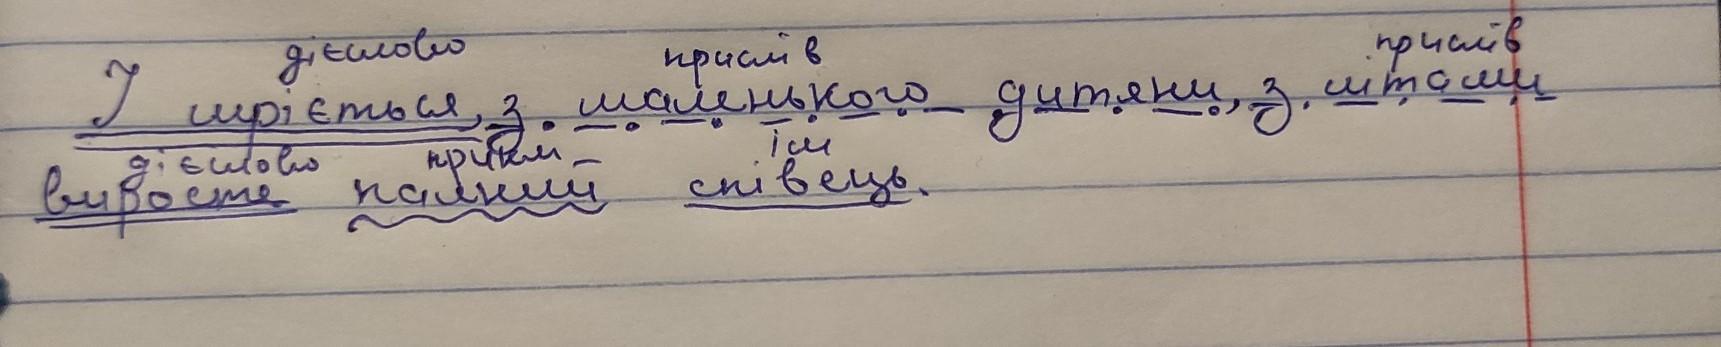 дієслово прислів прислів
І мріється, з маленького дитяни, з літами
дієслово прикм ім
виросте палкий співець.